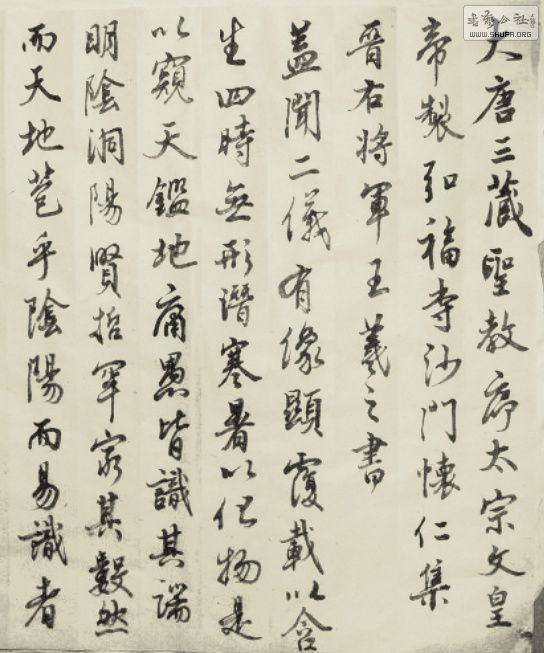 大唐三藏聖教序太宗文皇
帝製弘福寺沙門懷仁集
晉右將軍王羲之書
蓋聞二儀有像顯覆載以含
生四時無形潛寒暑以化物是
以窺天鑑地庸愚皆識其端
明陰洞陽賢哲罕窮其數然
而天地苞乎陰陽而易識者
書藝公社
WWW.SHUFA.ORG